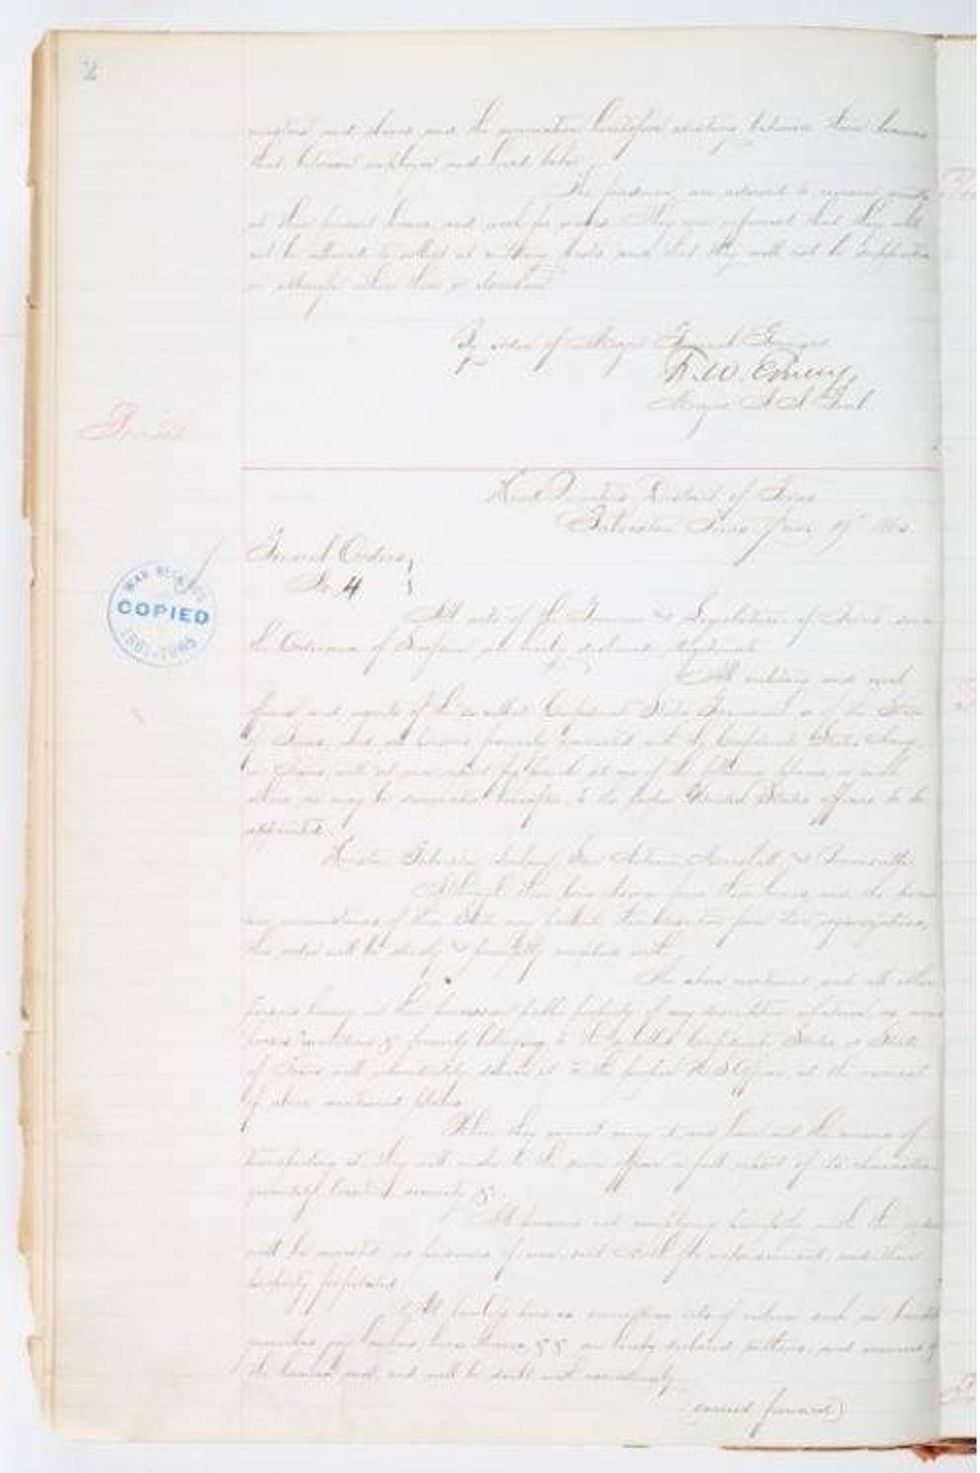 2
masters and slaves and the connection heretofore existing between them becomes
that between employer and hired labor.
The freedmen are advised to remain quietly
at their present homes, and work for wages. They are informed that they will
not be allowed to collect at military posts and that they will not be supported
in idleness either there or elsewhere.
By order of Major General Granger
F. W. Emery
Major & A A Genl.
Head Quarters District of Texas
Galveston Texas June 19th 1865.
General Orders
No. 4
WAR RECORDS
COPIED
1861-1865
All acts of the Governor & Legislature of Texas since
the Ordinance of Secession are hereby declared illegitimate.
All military and civil
officers and agents of the so called Confederate States Government or of the State
of Texas, and all persons formerly connected with the Confederate States Army
in Texas, will at once report for parole at one of the following places, or such
others as may be designated hereafter, to the proper United States officers to be
appointed.
Houston Galveston San Antonio Marshall, & Brownsville
Although their long absence from their homes and the
circumstances of their State may
this order will be strictly & promptly complied with.
The above mentioned and all other
persons having in their possession public property of any description whatever, as arms
horses munitions & formerly belonging to the so called Confederate States or State
of Texas will immediately deliver it to the proper U S Officer, at the nearest
of above mentioned places.
When they cannot carry it, and have not the means of
transporting it, they will make to the same officer a full report of its character
quantity, location, security &c.
All persons not complying promptly with this order
will be arrested as prisoners of war, and sent for imprisonment, and their
property forfeited.
All lawless persons committing acts of violence such as
guerrillas jay hawkers, horse thieves &c &c are hereby declared outlaws, and enemies of
the human race, and will be dealt with accordingly.
(carried forward)